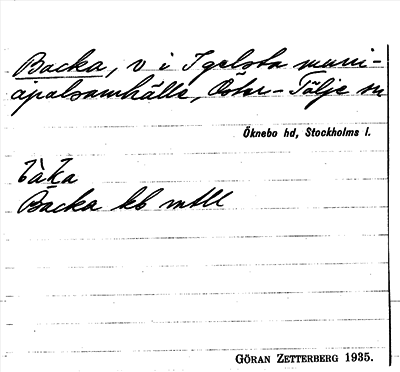 Backa, v i Igelsta muni-
cipalsamhälle, Öster-Tälje sn
Öknebo hd, Stockholms l.
Backa kb mtll
GÖRAN ZETTERBERG 1935.